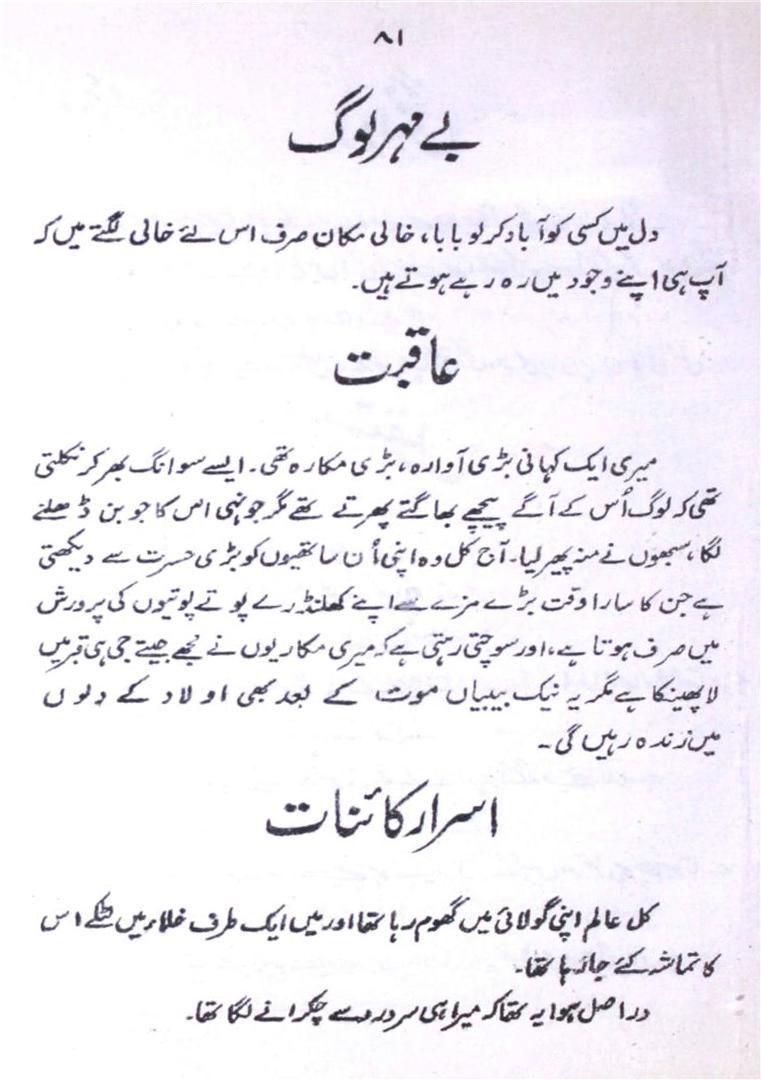 ۸۱
بے مہر لوگ
دل میں کسی کو آباد کر لو بابا، خالی مکان صرف اس لئے خالی لگتے ہیں کہ
آپ ہی اپنے وجود میں رہ رہے ہوتے ہیں۔
عاقبت
میری ایک کہانی بڑی آوارہ، بڑی مکارہ تھی۔ ایسے سوانگ بھر کر نکلتی
تھی کہ لوگ اُس کے آگے پیچھے بھاگتے پھرتے تھے مگر جونہی اس کا جوبن ڈھلنے
لگا، سبھوں نے منہ پھیر لیا۔ آج کل وہ اپنی اُن ساتھیوں کو بڑی حسرت سے دیکھتی
ہے جن کا سارا وقت بڑے مزے سے اپنے کھلنڈرے پوتے پوتیوں کی پرورش
میں صرف ہوتا ہے، اور سوچتی رہتی ہے کہ میری مکاریوں نے مجھے جیتے جی ہی قبر میں
لا پھینکا ہے مگر یہ نیک بیبیاں موت کے بعد بھی اولاد کے دلوں
میں زندہ رہیں گی۔
اسرار کائنات
کل عالم اپنی گولائی میں گھوم رہا تھا اور میں ایک طرف خلاء میں لٹکے اس
کا تماشہ کئے جا رہا تھا۔
دراصل ہوا یہ تھا کہ میرا ہی سر درد سے چکرانے لگا تھا۔